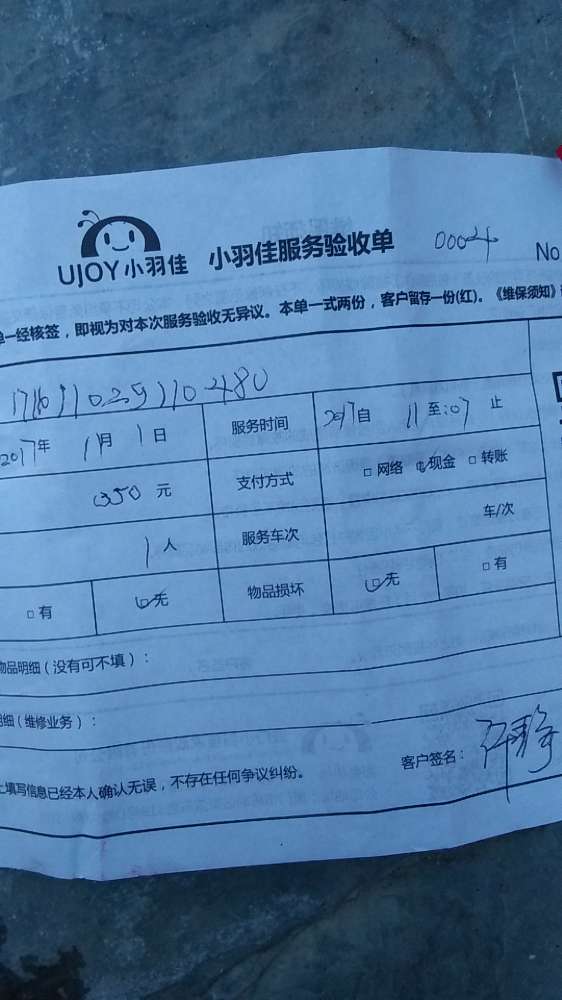 UJOY小羽佳 小羽佳服务验收单 0004 No
单一经核签，即视为对本次服务验收无异议。本单一式两份，客户留存一份(红)。《维保须知》
2017年 1月 1日 服务时间 2017自 11至:07止
350元 支付方式 □网络 ☑现金 □转账
1人 服务车次 车/次
□有 ☑无 物品损坏 ☑无 □有
物品明细（没有可不填）：
明细（维修业务）：
上填写信息已经本人确认无误，不存在任何争议纠纷。 客户签名：